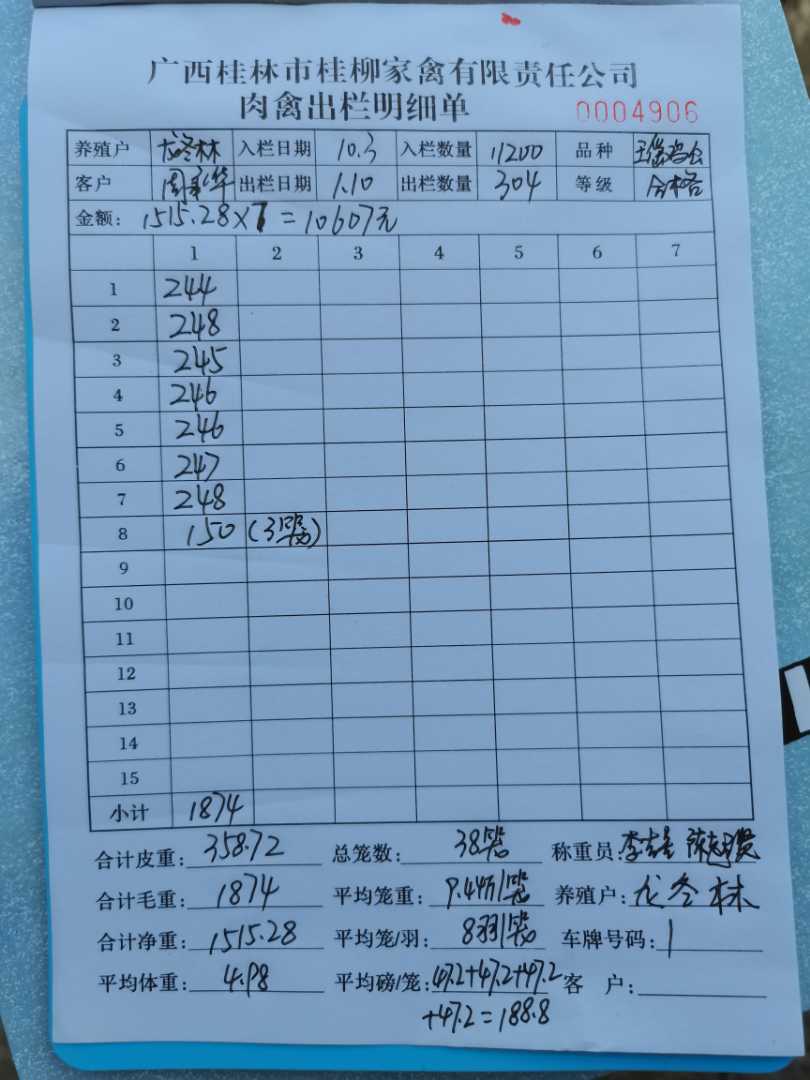 广西桂林市桂柳家禽有限责任公司
肉禽出栏明细单 0004906
养殖户 龙冬林 入栏日期 10.3 入栏数量 11200 品种
客户 出栏日期 1.10 出栏数量 304 等级 合格
金额: 1515.28×7=10607元
1 2 3 4 5 6 7
1 244
2 248
3 245
4 246
5 246
6 247
7 248
8 150 (3笼)
9
10
11
12
13
14
15
小计 1874
合计皮重: 358.72 总笼数: 38笼 称重员:
合计毛重: 1874 平均笼重: 9.44斤/笼 养殖户: 龙冬林
合计净重: 1515.28 平均笼/羽: 8羽/笼 车牌号码: 1
平均体重: 4.98 平均磅/笼: 47.2+47.2+47.2 客 户:
+47.2=188.8